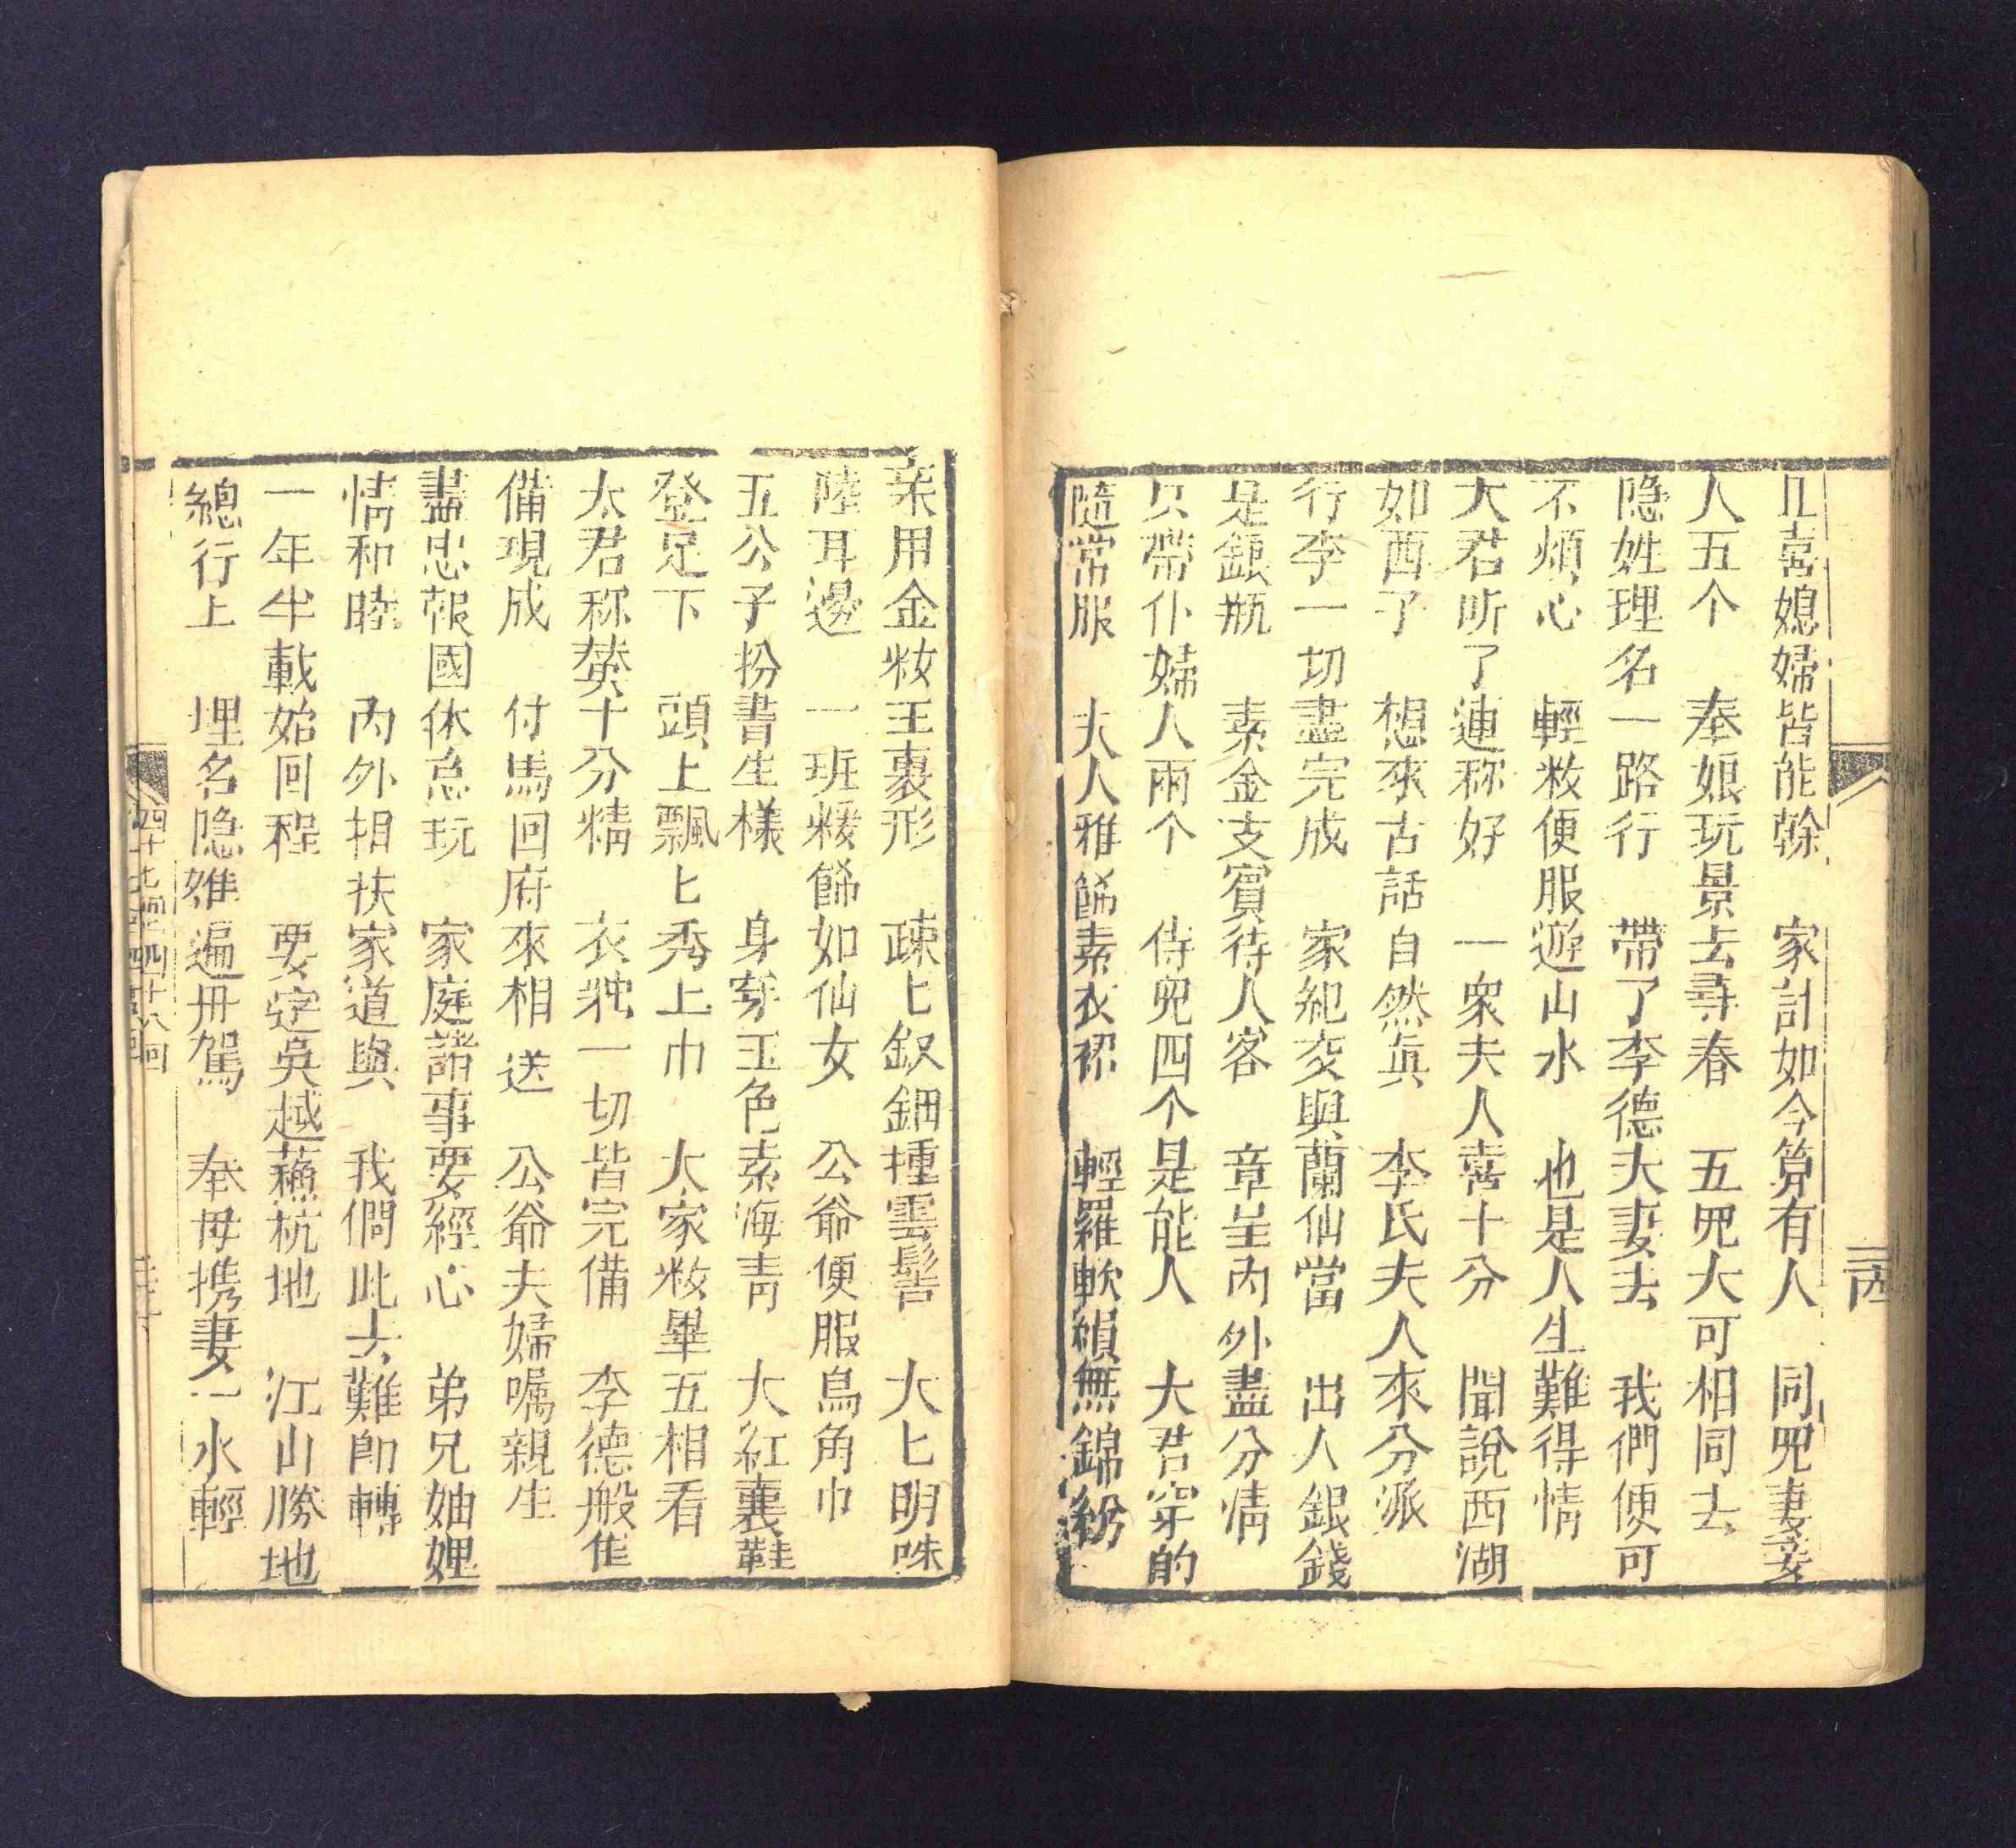 且喜媳婦皆能幹 家計如今算有人 同兕妻妾
人五个 奉娘玩景去尋春 五兕大可相同去
隐姓理名一路行 帶了李德夫妻去 我們便可
不煩心 輕粧便服遊山水 也是人生難得情
大君听了連称好 一衆夫人喜十分 聞說西湖
如西子 想來古話自然眞 李氏夫人來分派
行李一切盡完成 家紀交與蘭仙當 出人銀錢
是銀瓶 素金支賓待人客 章呈内外盡分清
只帶仆婦人兩个 侍兕四个是能人 大君穿的
隨常服 夫人雅餙素衣裙 輕羅軟縜無錦紛
三四
来用金妝玉裹形 疎匕釵鈿揷雲鬢 大匕明咮
墜耳邊 一班粧餙如仙女 公爺便服鳥角巾
五公子扮書生様 身穿玉色素海青 大紅裏鞋
登足下 頭上飄匕秀士巾 大家粧畢五相看
太君称獎十分精 衣粧一切皆完備 李德般隹
備現成 付馬回府來相送 公爺夫婦嘱親生
盡忠報國休怠玩 家庭諸事要經心 弟兄妯娌
情和睦 内外相扶家道興 我們此去難即轉
一年半載始回程 要定吳越蘓杭地 江山勝地
總行上 埋名隐雉遍毌駕 奉毋携妻一水輕